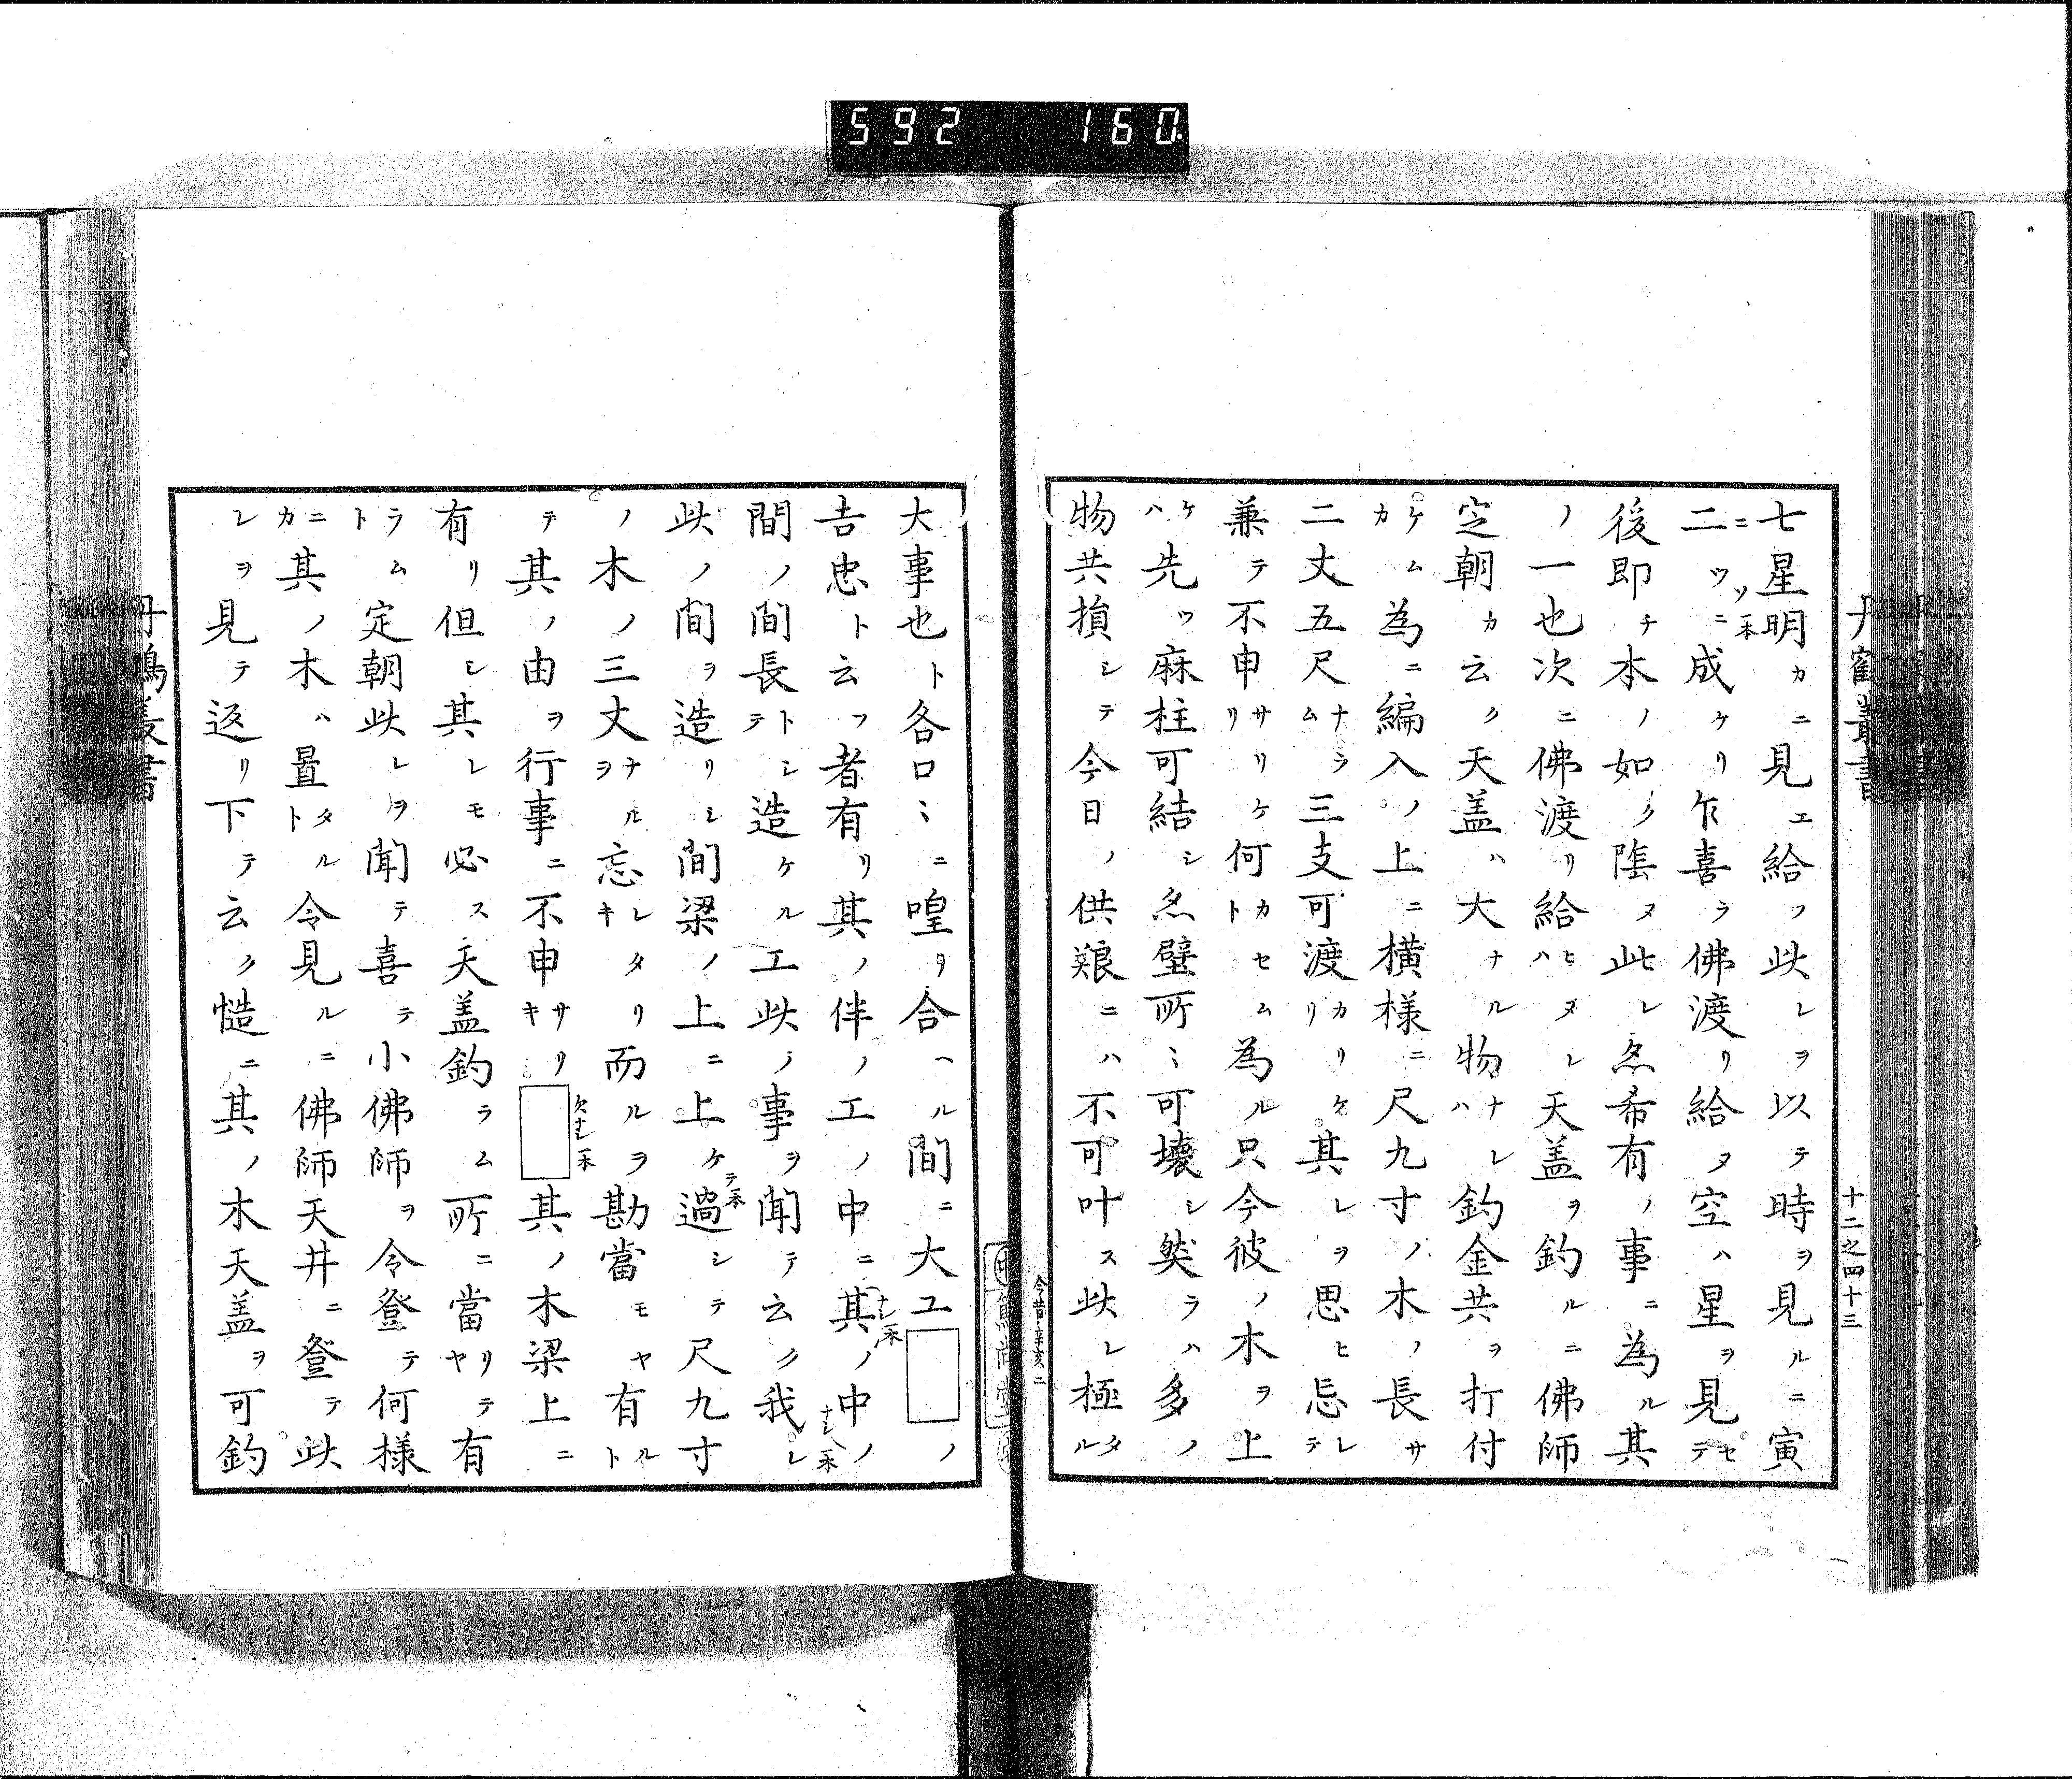 592 160.
丹鶴叢書
十二之四十三
七星明カニ見エ給フ此レヲ以テ時ヲ見ルニ寅
ニツニ成ケリ乍喜ラ佛渡リ給ヌ空ハ星ヲ見セテ
ニツ一本
後即チ本ノ如ク陰ヌ此レ亦希有ノ事ニ為ル其
ノ一也次ニ佛渡リ給ヒヌレハ天盖ヲ釣ルニ佛師
定朝カ云ク天盖ハ大ナル物ナレハ釣金共ヲ打付
ケムカ為ニ編入ノ上ニ横様ニ尺九寸ノ木ノ長サ
二丈五尺ナラム三支可渡カリケリ其レヲ思ヒ忘レテ
兼テ不申サリケリ何カセムト為ル只今彼ノ木ヲ上
ケハ先ツ麻柱可結シ亦壁所〻可壊シ然ラハ多ノ
物共損シテ今日ノ供養ニハ不可叶ス此レ極タル
今昔辛亥ニ
大事也ト各口〻ニ喤リ合ヘル間ニ大工□ノ
吉忠ト云フ者有リ其ノ伴ノ工ノ中ニ其ノ中ノ
ナシ一本
間ノ間長トシテ造ケル工此ノ事ヲ聞テ云ク我レ
ナシ八本
此ノ間ヲ造リシ間梁ノ上ニ上ケ過シテ尺九寸
テ一本
ノ木ノ三丈ナルヲ忘レタリキ而ルヲ勘當モヤ有ルト
テ其ノ由ヲ行事ニ不申サリキ□其ノ木梁上ニ
欠ナシ一本
有リ但シ其レモ必ス天盖釣ラム所ニ當リテヤ有
ラムト定朝此レヲ聞テ喜テ小佛師ヲ令登テ何様
ニカ其ノ木ハ置タルト令見ルニ佛師天井ニ登テ此
レヲ見テ返リ下テ云ク慥ニ其ノ木天盖ヲ可釣